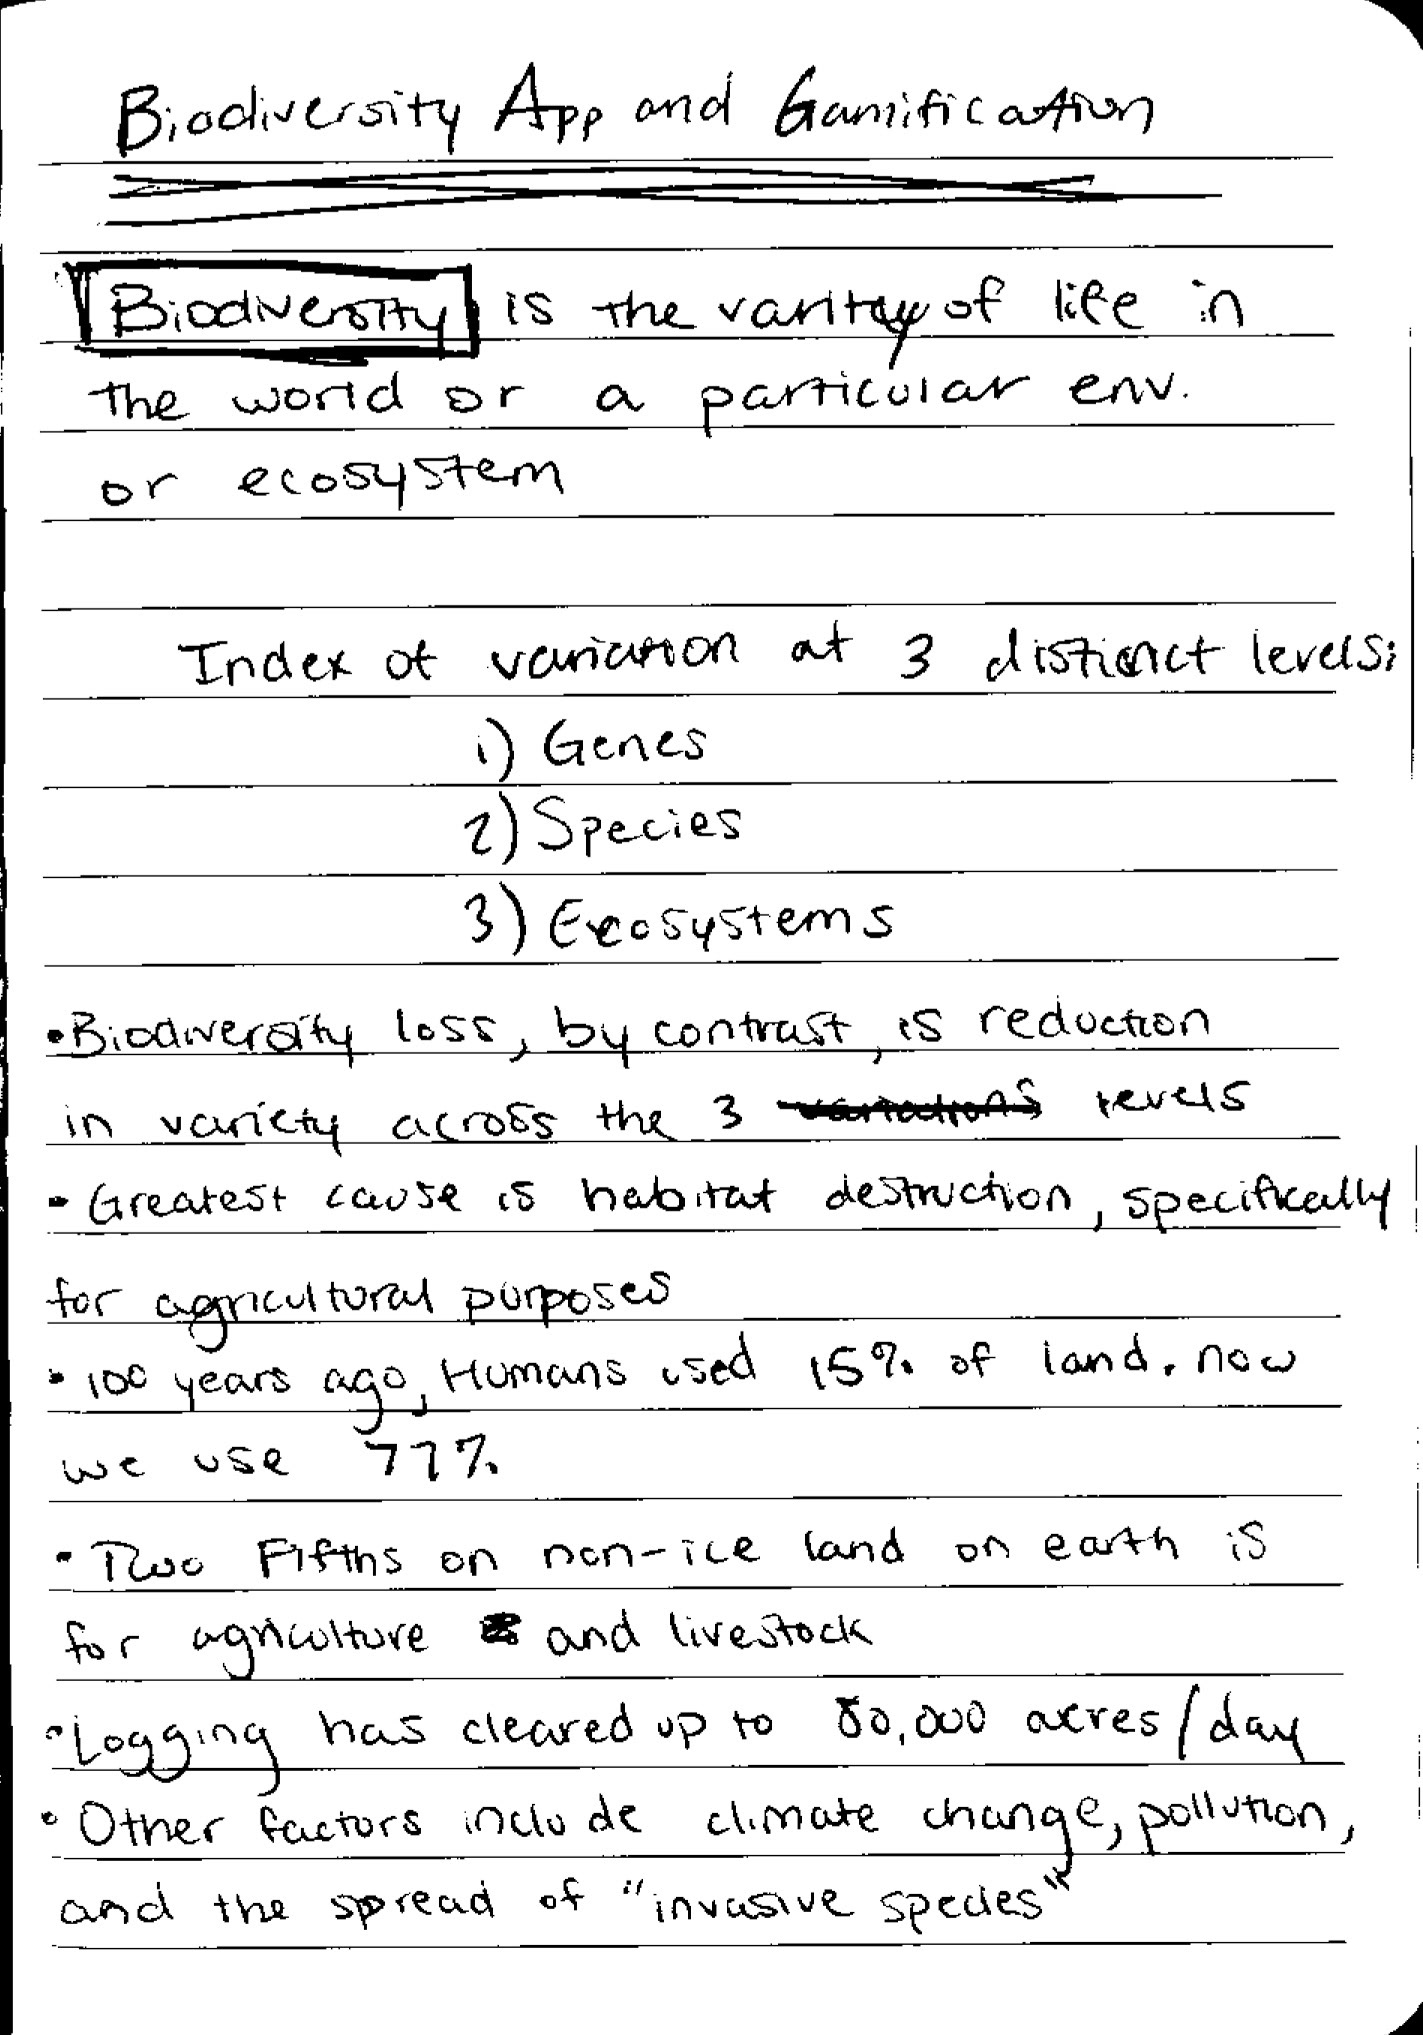 Biodiversity App and Gamification
Biodiversity is the varitey of life in
the world or a particular env.
or ecosystem
Index of variation at 3 distinct levels:
1) Genes
2) Species
3) Ecosystems
• Biodiversity loss, by contrast, is reduction
in variety across the 3 variations levels
• Greatest cause is habitat destruction, specifically
for agricultural purposes
• 100 years ago, Humans used 15% of land. now
we use 77%
• Two Fifths on non-ice land on earth is
for agriculture and livestock
• Logging has cleared up to 80,000 acres/day
• Other factors include climate change, pollution,
and the spread of "invasive species"